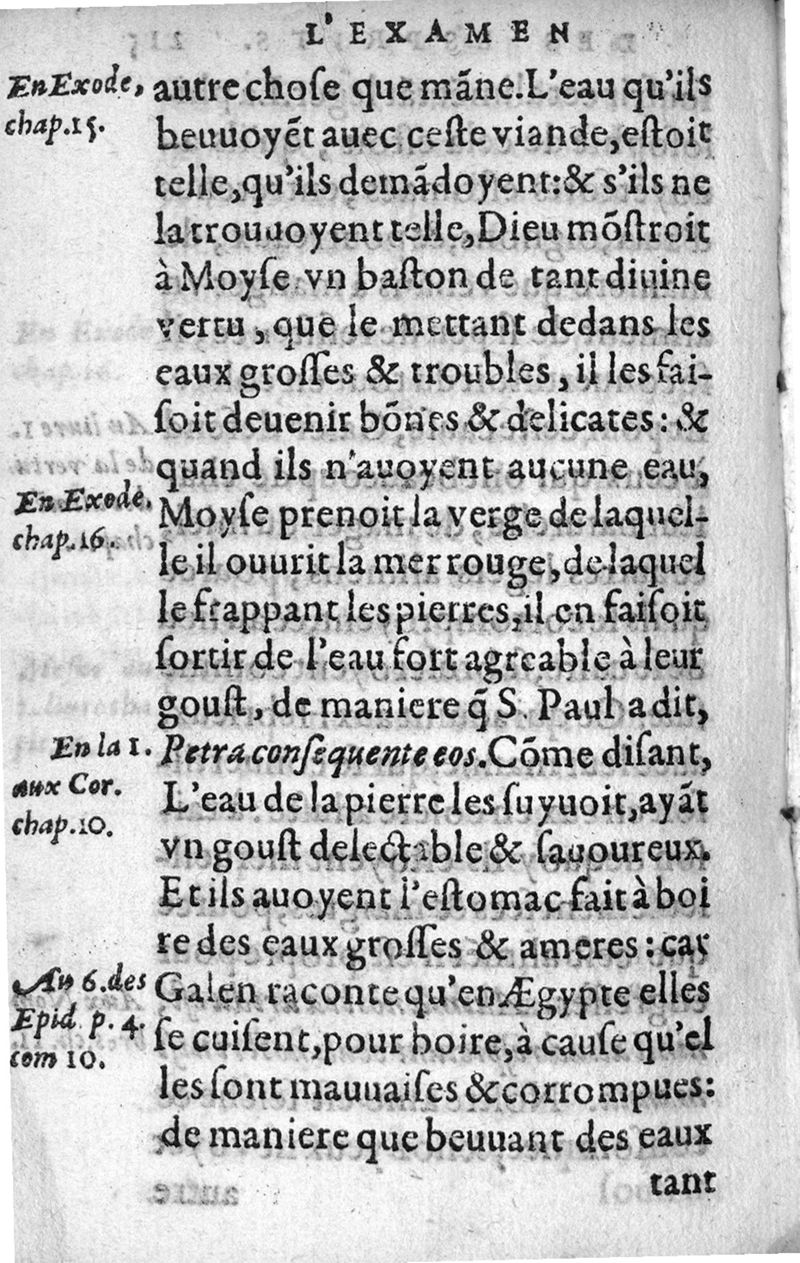 L'EXAMEN
En Exode,
chap.15.
autre choſe que mãne.L'eau qu'ils
beuuoyẽt auec ceſte viande,eſtoit
telle,qu'ils demãdoyent:& s'ils ne
la trouuoyent telle,Dieu mõſtroit
à Moyſe vn baſton de tant diuine
vertu , que le mettant dedans les
eaux groſſes & troubles , il les fai-
ſoit deuenir bõnes & delicates : &
quand ils n'auoyent aucune eau,
En Exode.
chap.16.
Moyſe prenoit la verge de laquel-
le il ouurit la mer rouge, de laquel
le frappant les pierres,il en faiſoit
ſortir de l'eau fort agreable à leur
gouſt, de maniere q̃ S. Paul a dit,
En la 1.
aux Cor.
chap.10.
Petra conſequente eos.Cõme diſant,
L'eau de la pierre les ſuyuoit,ayãt
vn gouſt delectable & ſauoureux.
Et ils auoyent l'eſtomac fait à boi
re des eaux groſſes & ameres : car
Au 6.des
Epid p. 4.
com 10.
Galen raconte qu'en Ægypte elles
ſe cuiſent,pour boire,à cauſe qu'el
les ſont mauuaiſes & corrompues:
de maniere que beuuant des eaux
tant